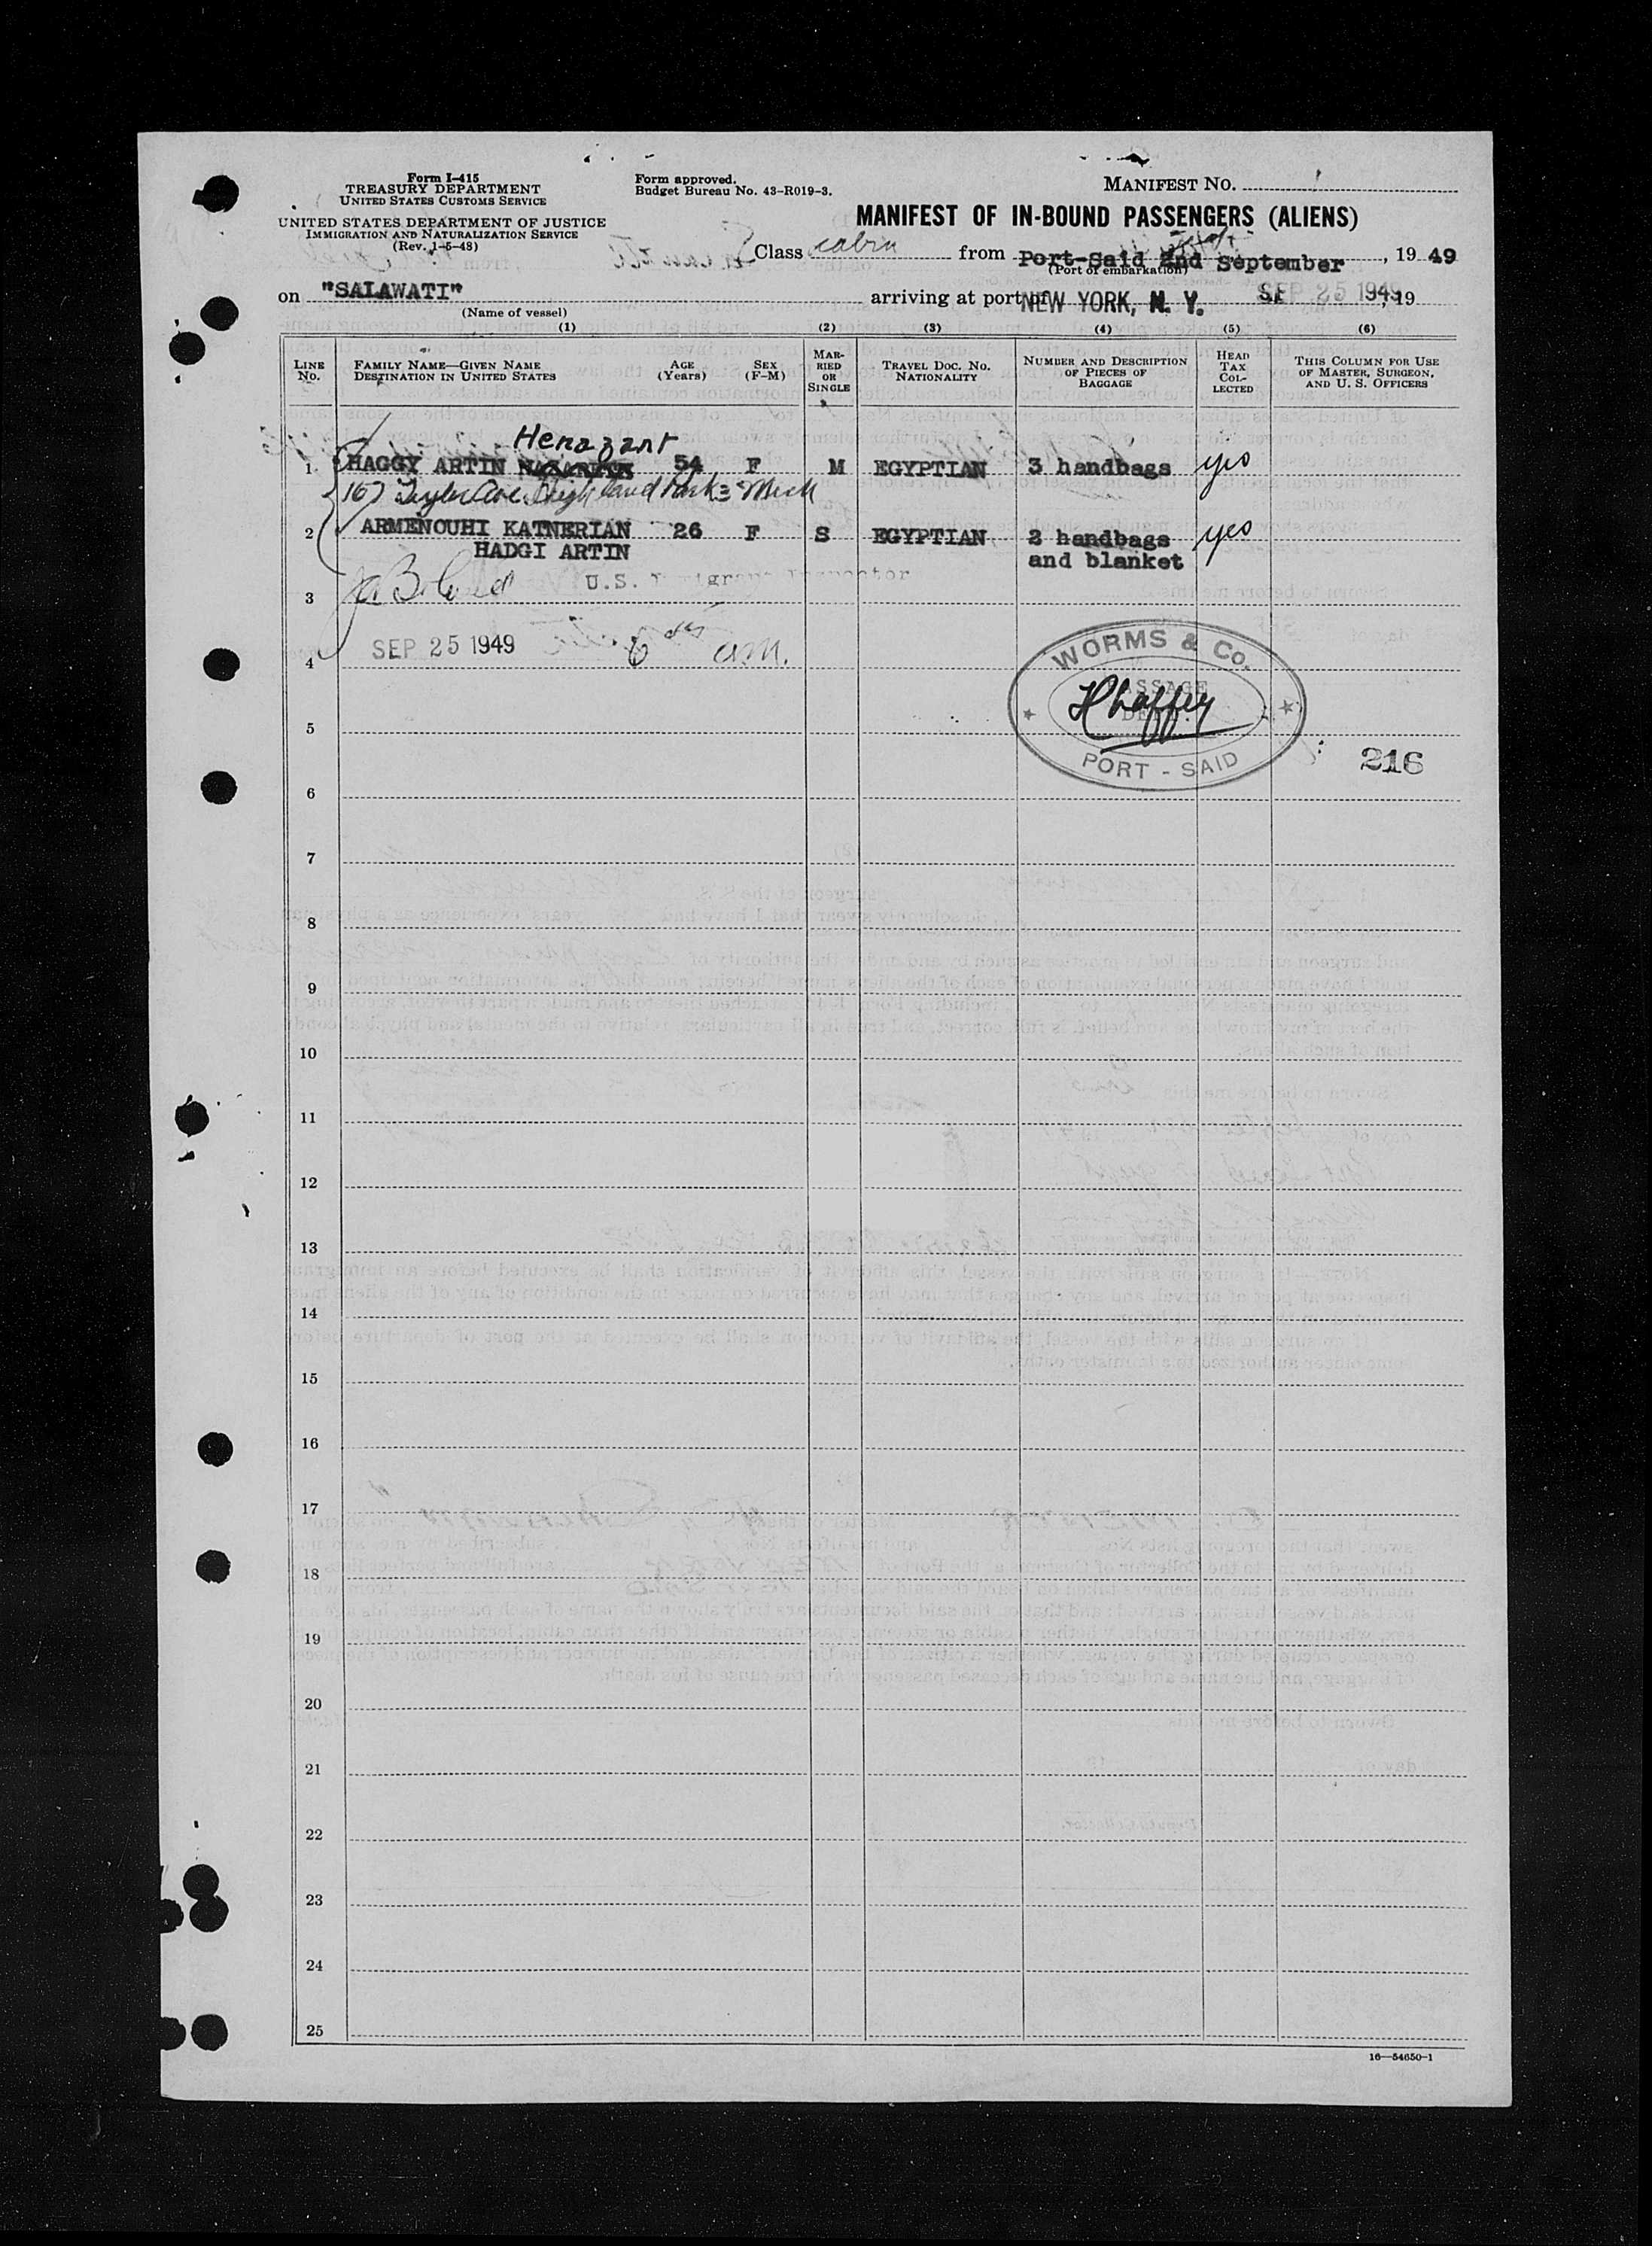 Form I-415
TREASURY DEPARTMENT
UNITED STATES CUSTOMS SERVICE
UNITED STATES DEPARTMENT OF JUSTICE
IMMIGRATION AND NATURALIZATION SERVICE
(Rev. 1-5-48)
Form approved.
Budget Bureau No. 43-R019-3.
MANIFEST NO. 1
MANIFEST OF IN-BOUND PASSENGERS (ALIENS)
Class cabin from Port-Said 2nd September, 19 49
(Port of embarkation)
on "SALAWATI" arriving at port of NEW YORK, N. Y. SEP 25 1949, 19
(Name of vessel)
(1) (2) (3) (4) (5) (6)
LINE No. FAMILY NAME—GIVEN NAME DESTINATION IN UNITED STATES AGE (Years) SEX (F-M) MARRIED OR SINGLE TRAVEL DOC. No. NATIONALITY NUMBER AND DESCRIPTION OF PIECES OF BAGGAGE HEAD TAX COLLECTED THIS COLUMN FOR USE OF MASTER, SURGEON, AND U. S. OFFICERS
Henazant
1 HAGGY ARTIN NAZARETH 54 F M EGYPTIAN 3 handbags yes
167 Taylor Ave. Highland Park 3 Mich
2 ARMENOUHI KATNERIAN 26 F S EGYPTIAN 2 handbags yes
HADGI ARTIN and blanket
U.S. Immigrant Inspector
3
SEP 25 1949 6 am.
4
WORMS & Co.
PASSAGE
DEPT.
PORT - SAID
5
216
6
7
8
9
10
11
12
13
14
15
16
17
18
19
20
21
22
23
24
25
16—54650-1